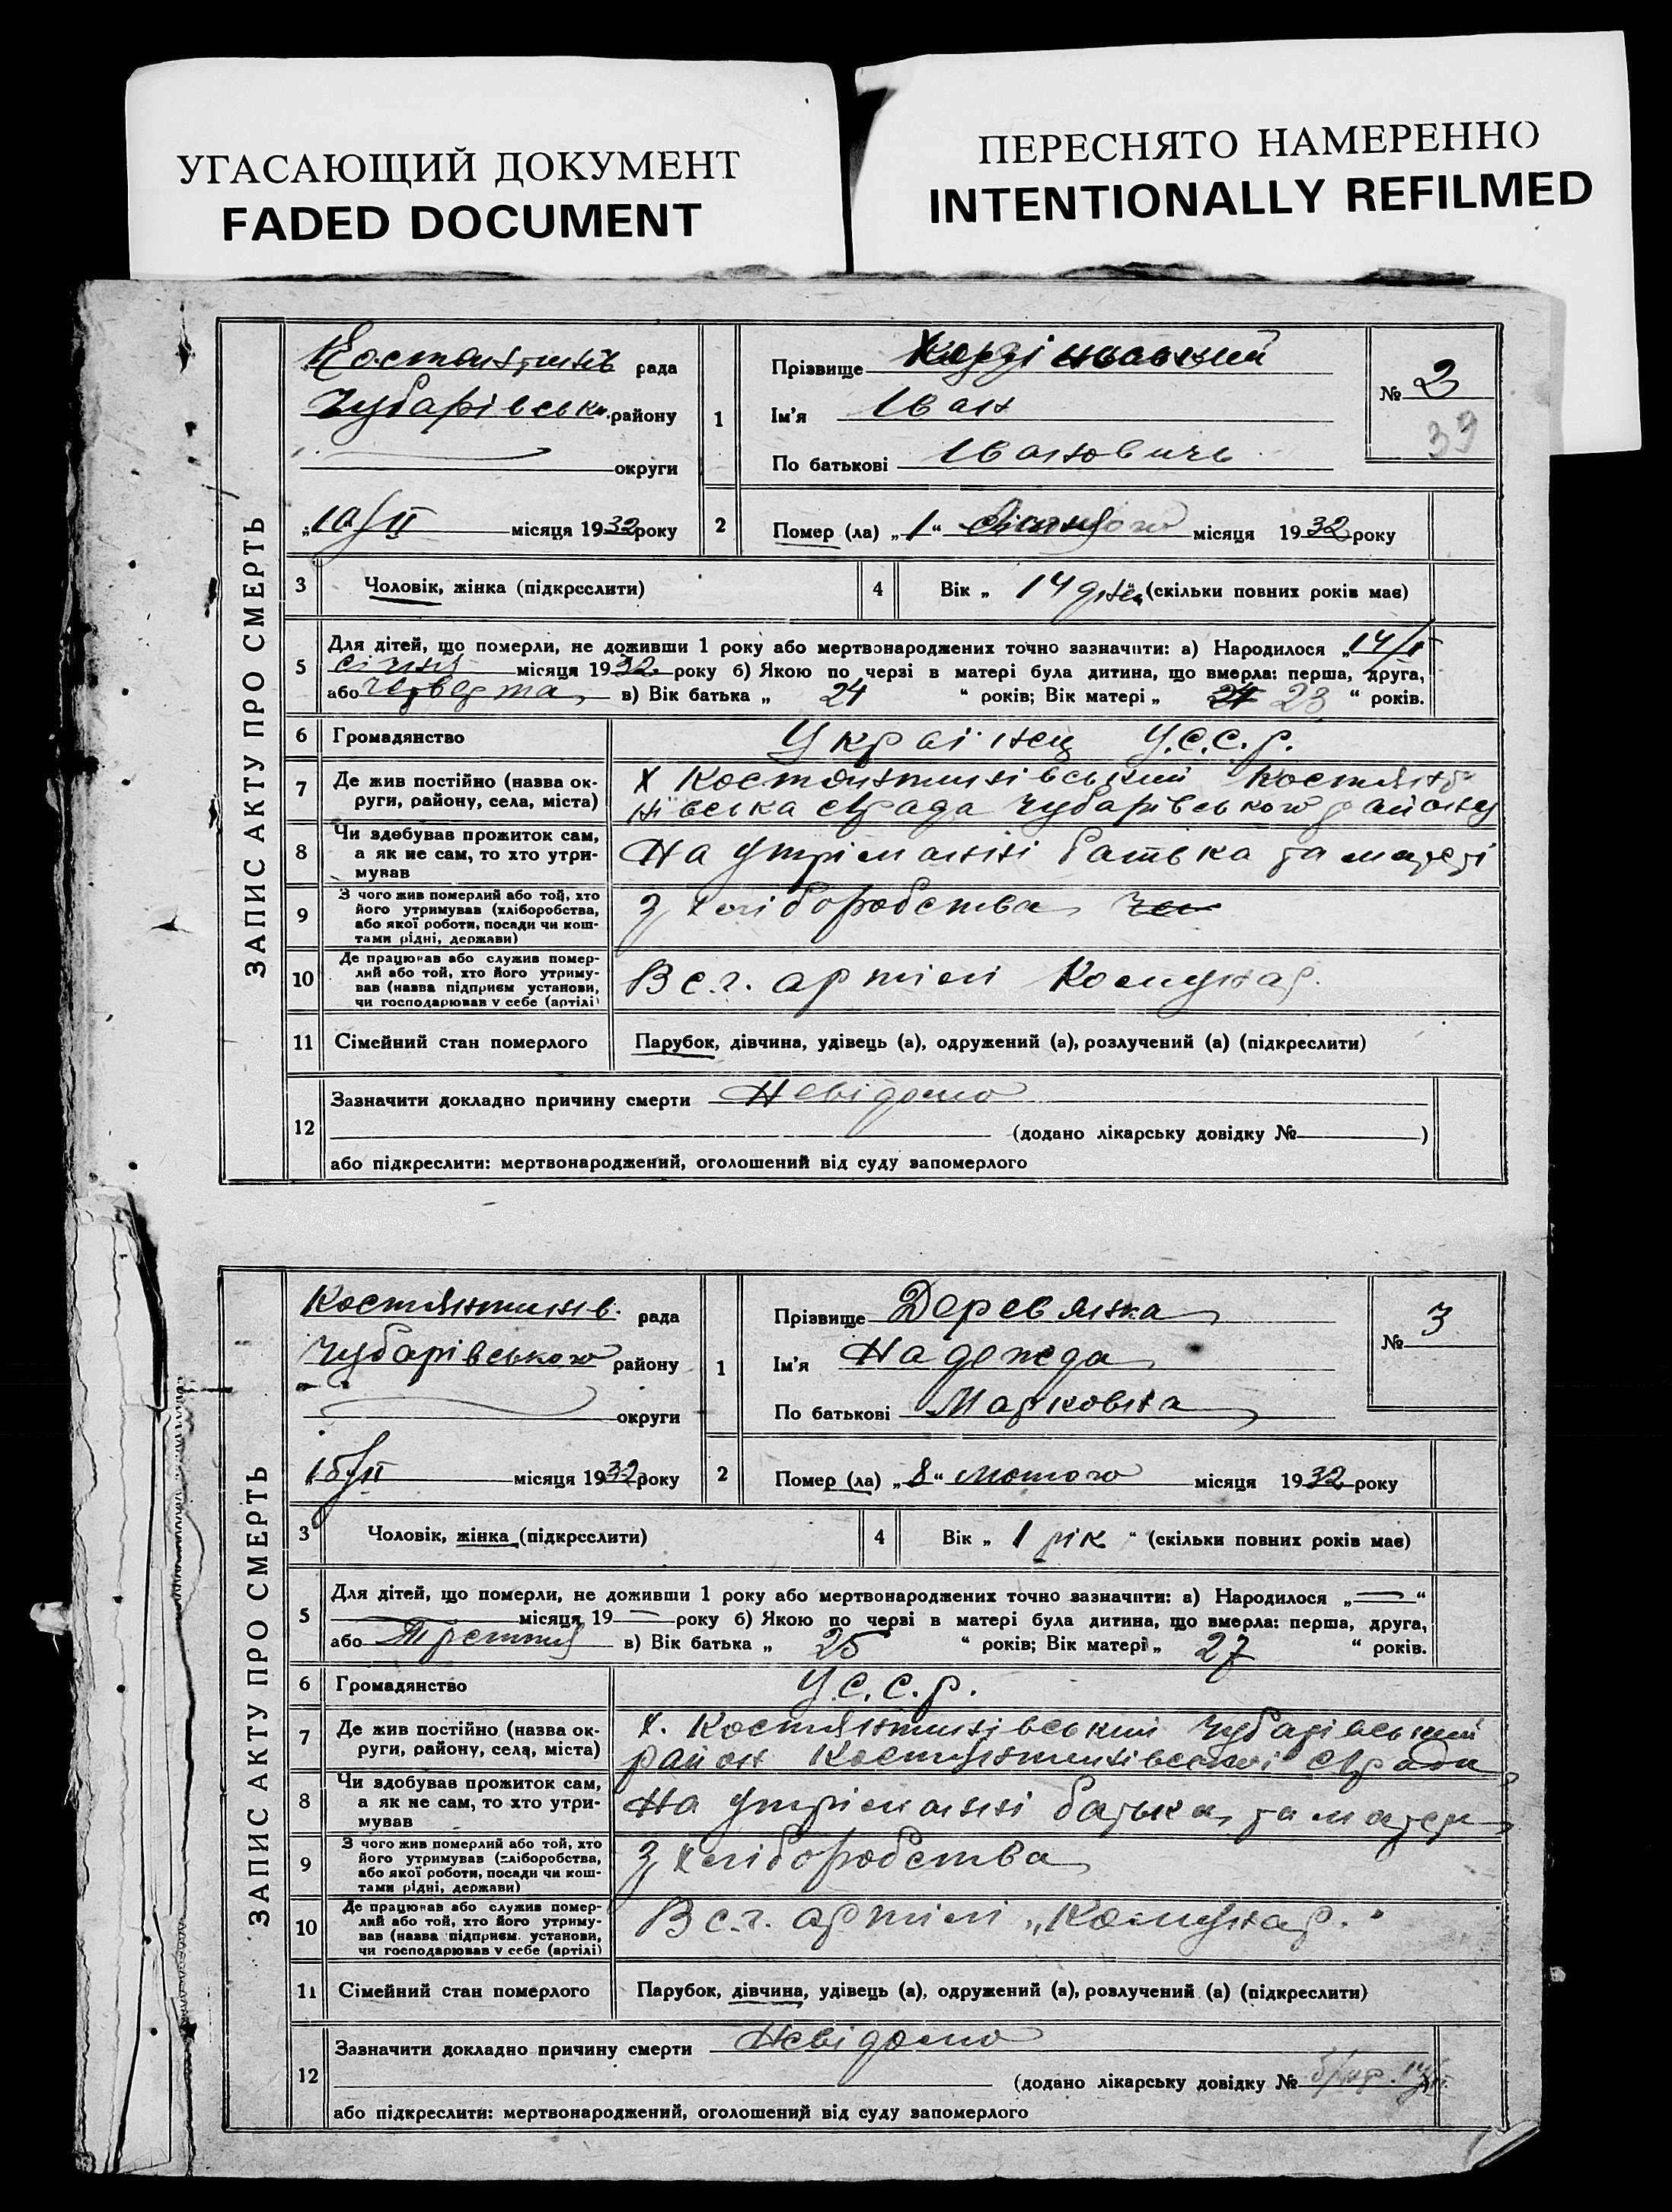 УГАСАЮЩИЙ ДОКУМЕНТ
FADED DOCUMENT
ПЕРЕСНЯТО НАМЕРЕННО
INTENTIONALLY REFILMED
ЗАПИС АКТУ ПРО СМЕРТЬ
рада
Чубарівськ. району
округи
„10/II місяця 1932 року
1
Прізвище
Ім'я Іван
По батькові Іванович
№ 2
39
2 Помер (ла) „1“ місяця 1932 року
3 Чоловік, жінка (підкреслити)
4 Вік „ 14 днів (скільки повних років має)
5 Для дітей, що померли, не доживши 1 року або мертвонароджених точно зазначити: а) Народилося „
січня місяця 1932 року б) Якою по черзі в матері була дитина, що вмерла: перша, друга,
або в) Вік батька „ 24 “ років; Вік матері „ 23 “ років.
6 Громадянство Українец У.С.С.Р.
7 Де жив постійно (назва ок-
руги, району, села, міста)
Х Костянтинівський
нівська с/рада Чубарівського району
8 Чи здобував прожиток сам,
а як не сам, то хто утри-
мував
На утріманні батька та матері
9 З чого жив померлий або той, хто
його утримував (хліборобства,
або якої роботи, посади чи кош-
тами рідні, держави)
З хліборобства
10 Де працював або служив помер-
лий або той, хто його утриму-
вав (назва підприєм установи,
чи господарював у себе (артілі)
В с.г. артілі Комунар.
11 Сімейний стан померлого Парубок, дівчина, удівець (а), одружений (а), розлучений (а) (підкреслити)
12 Зазначити докладно причину смерти Невідомо
(додано лікарську довідку № )
або підкреслити: мертвонароджений, оголошений від суду запомерлого
ЗАПИС АКТУ ПРО СМЕРТЬ
Костянтинів. рада
Чубарівського району
округи
місяця 1932 року
1
Прізвище Деревянка
Ім'я Надежда
По батькові Марковна
№ 3
2 Помер (ла) „8“ лютого місяця 1932 року
3 Чоловік, жінка (підкреслити)
4 Вік „ 1 рік “ (скільки повних років має)
5 Для дітей, що померли, не доживши 1 року або мертвонароджених точно зазначити: а) Народилося „—“
місяця 19— року б) Якою по черзі в матері була дитина, що вмерла: перша, друга,
або в) Вік батька „ 25 “ років; Вік матері „ 27 “ років.
6 Громадянство У.С.С.Р.
7 Де жив постійно (назва ок-
руги, району, села, міста)
Х. Костянтинівський Чубарівський
район Костянтинівської с/ради
8 Чи здобував прожиток сам,
а як не сам, то хто утри-
мував
На утріманні батька та матери
9 З чого жив померлий або той, хто
його утримував (хліборобства,
або якої роботи, посади чи кош-
тами рідні, держави)
З хліборобства
10 Де працював або служив помер-
лий або той, хто його утриму-
вав (назва підприєм. установи,
чи господарював у себе (артілі)
В с.г. артілі „Комунар.“
11 Сімейний стан померлого Парубок, дівчина, удівець (а), одружений (а), розлучений (а) (підкреслити)
12 Зазначити докладно причину смерти Невідомо
(додано лікарську довідку №
або підкреслити: мертвонароджений, оголошений від суду запомерлого